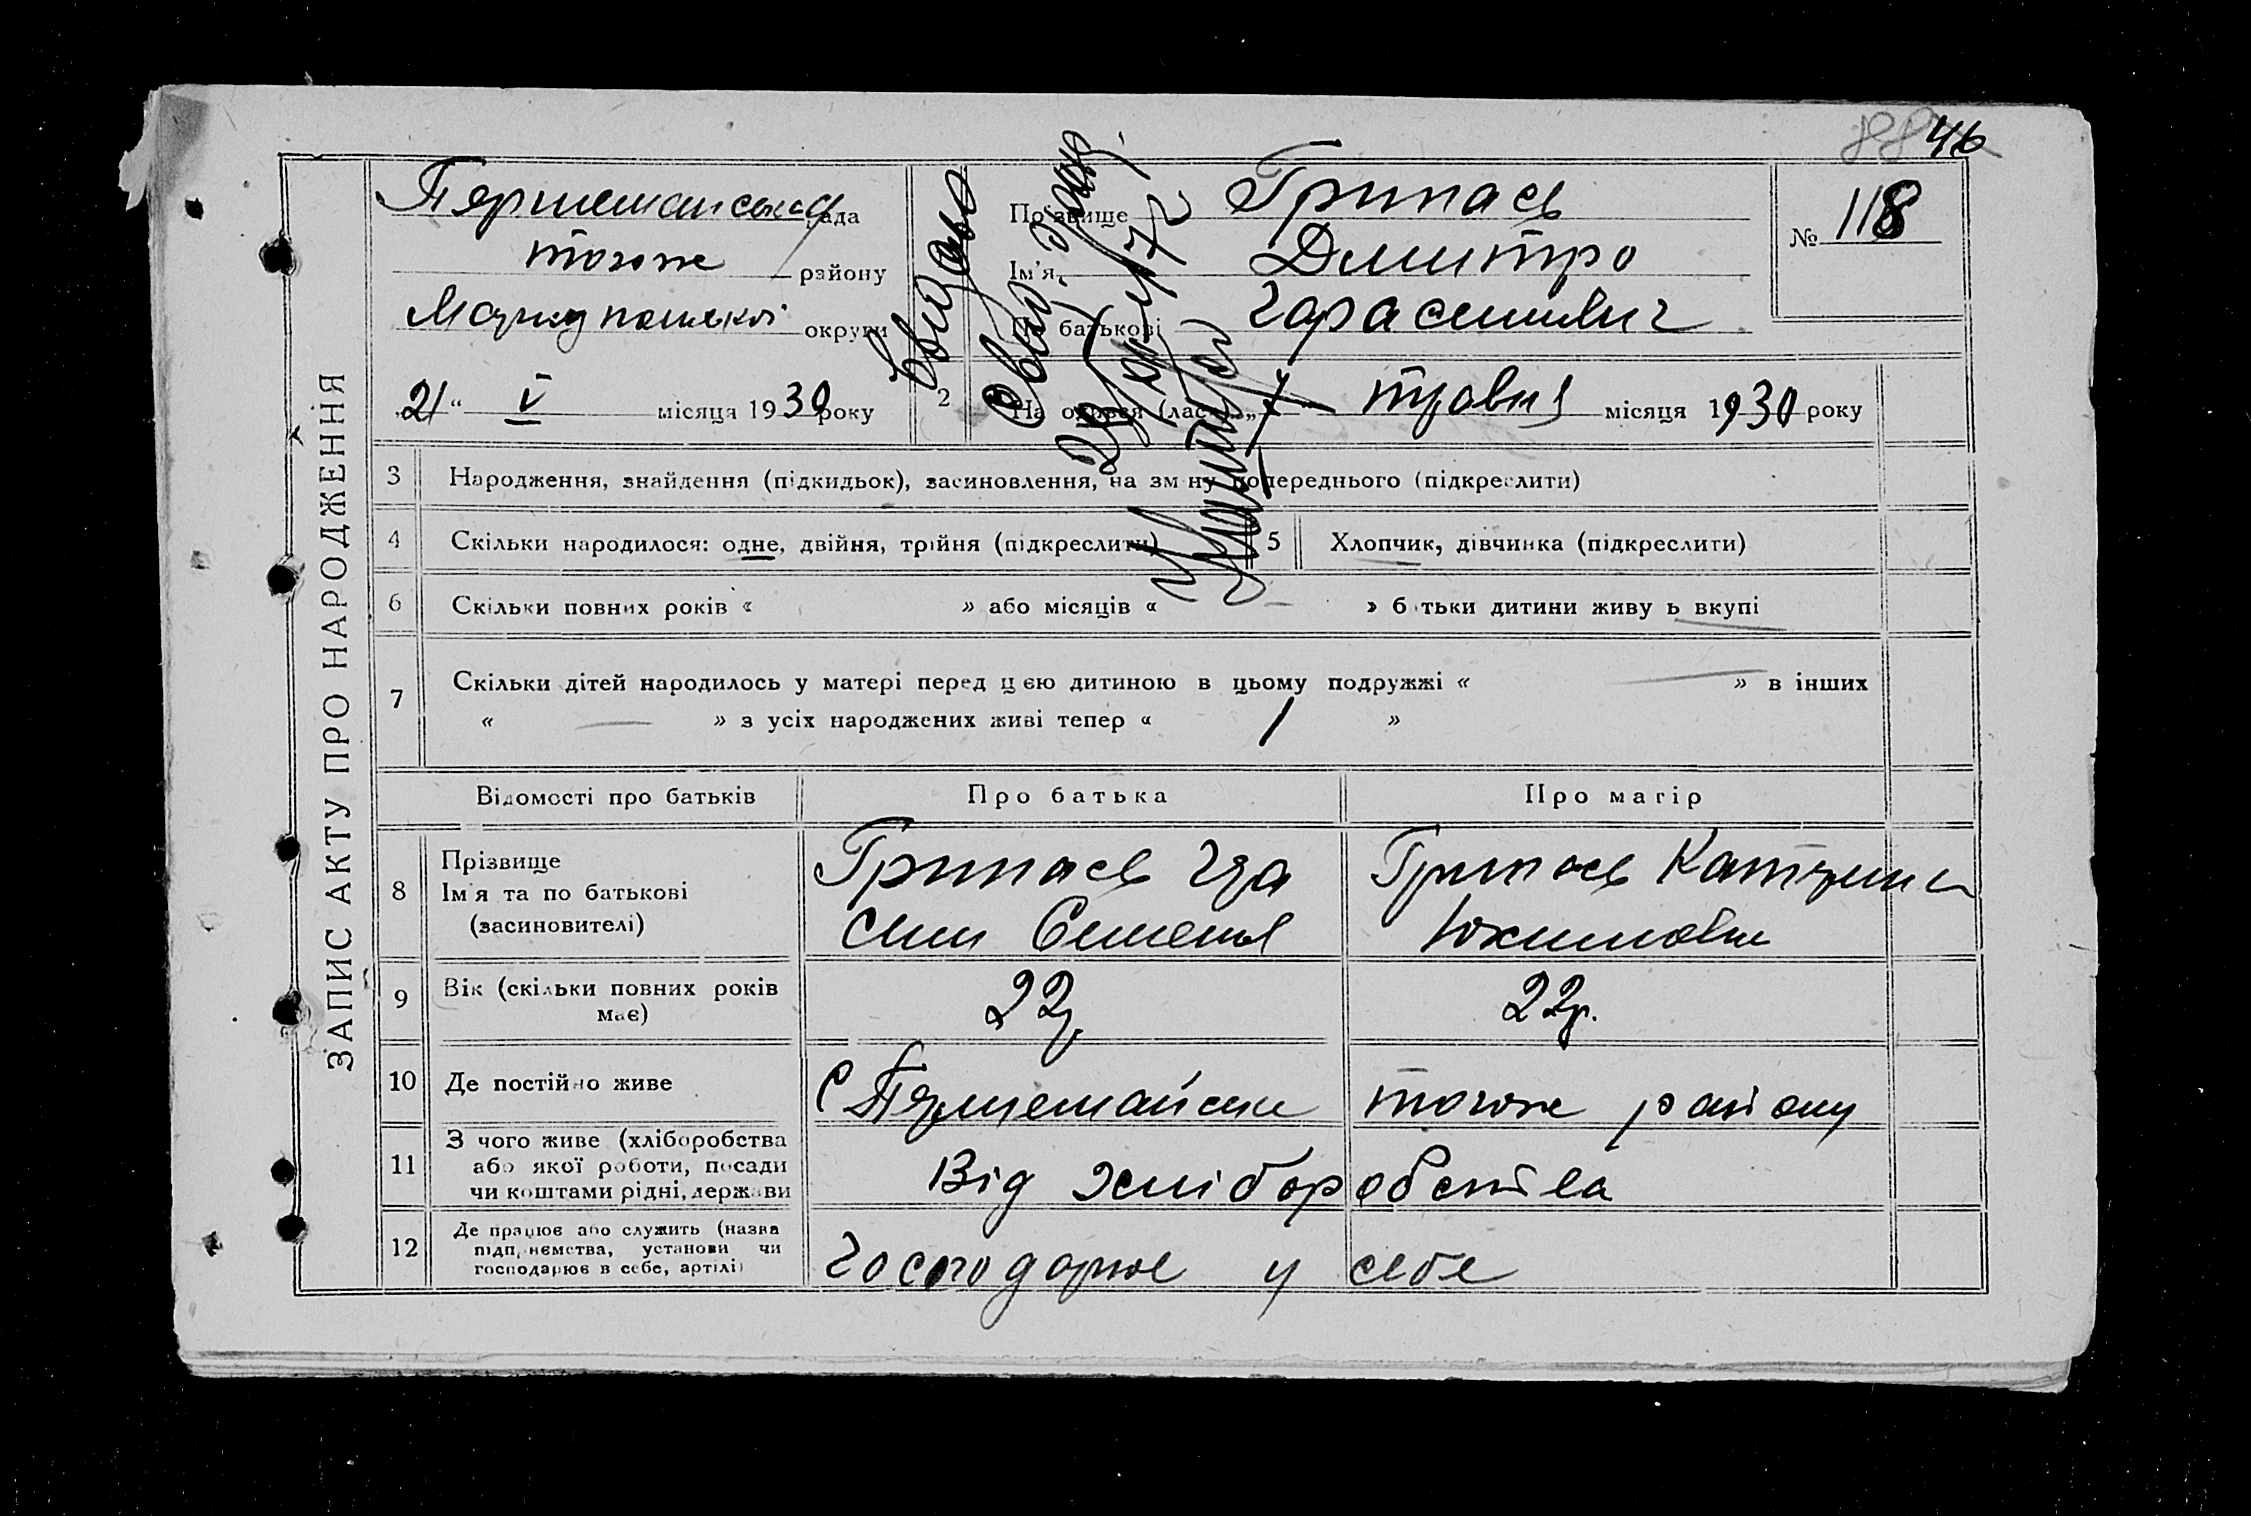 88 46
ЗАПИС АКТУ ПРО НАРОДЖЕННЯ
Першемайська рада
тогож району
Маріупольської округи
„21“ V місяця 1930 року
2
Прізвище Грипась
Ім'я Дмитро
По батькові Гарасимович
№ 118
На одився (лась) „7“ травня місяця 1930 року
Видано
3 Народження, знайдення (підкидьок), засиновлення, на зміну попереднього (підкреслити)
4 Скільки народилося: одне, двійня, трійня (підкреслити) 5 Хлопчик, дівчинка (підкреслити)
6 Скільки повних років « » або місяців « — » батьки дитини живуть вкупі
7 Скільки дітей народилось у матері перед цією дитиною в цьому подружжі « — » в інших
« — » з усіх народжених живі тепер « 1 »
Відомості про батьків Про батька Про матір
8 Прізвище
Ім'я та по батькові
(засиновителі)
Грипась Гра
сим Семенов
Грипась Катерина
Юхимовна
9 Вік (скільки повних років
має)
22р. 22р.
10 Де постійно живе с Першемайське тогож району
11 З чого живе (хліборобства
або якої роботи, посади
чи коштами рідні, держави
Від хліборобства
12 Де працює або служить (назва
підприємства, установи чи
господарює в себе, артілі)
Господарює у себе